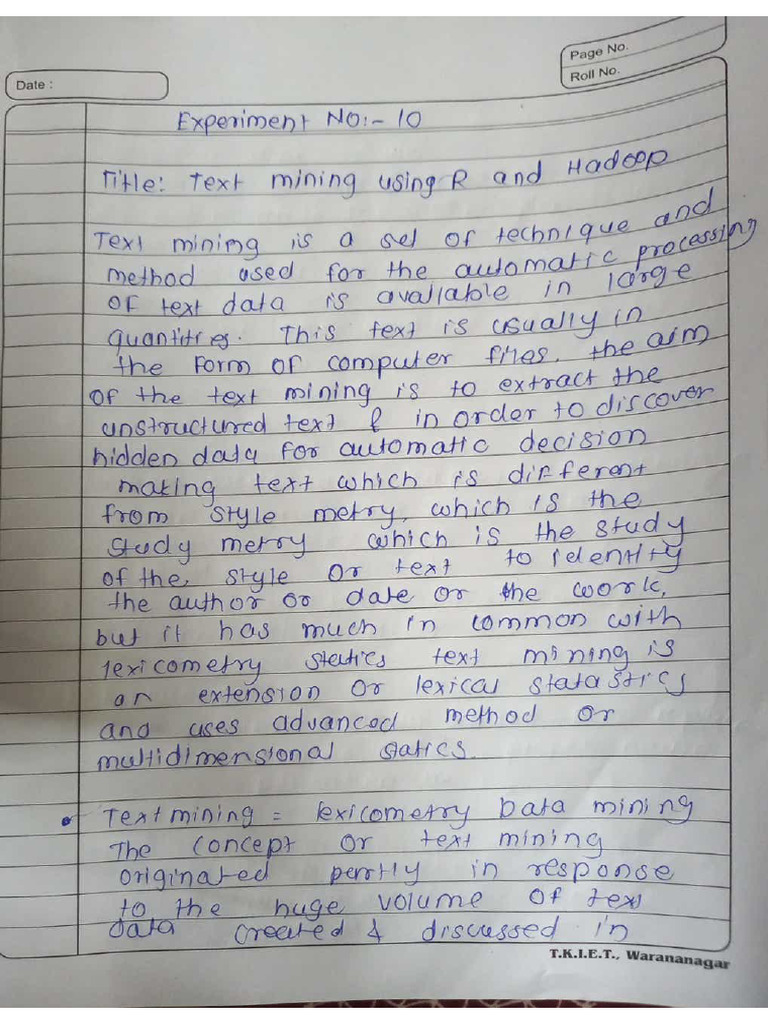 Page No.
Date :
Roll No.
Experiment No:- 10
Title: Text mining using R and Hadoop
Text mining is a set of technique and
method used for the automatic processing
of text data is available in large
quantities. This text is usually in
the form of computer files. the aim
of the text mining is to extract the
unstructured text & in order to discover
hidden data for automatic decision
making text which is different
from style metry, which is the
study metry which is the study
of the style or text to identity
the author or date or the work,
but it has much in common with
lexicometry statics text mining is
an extension or lexical statastics
and uses advanced method or
multidimensional statics.
• Text mining = lexicometry Data mining
The concept or text mining
originated pertly in response
to the huge volume of text
data created & discussed in
T.K.I.E.T., Warananagar